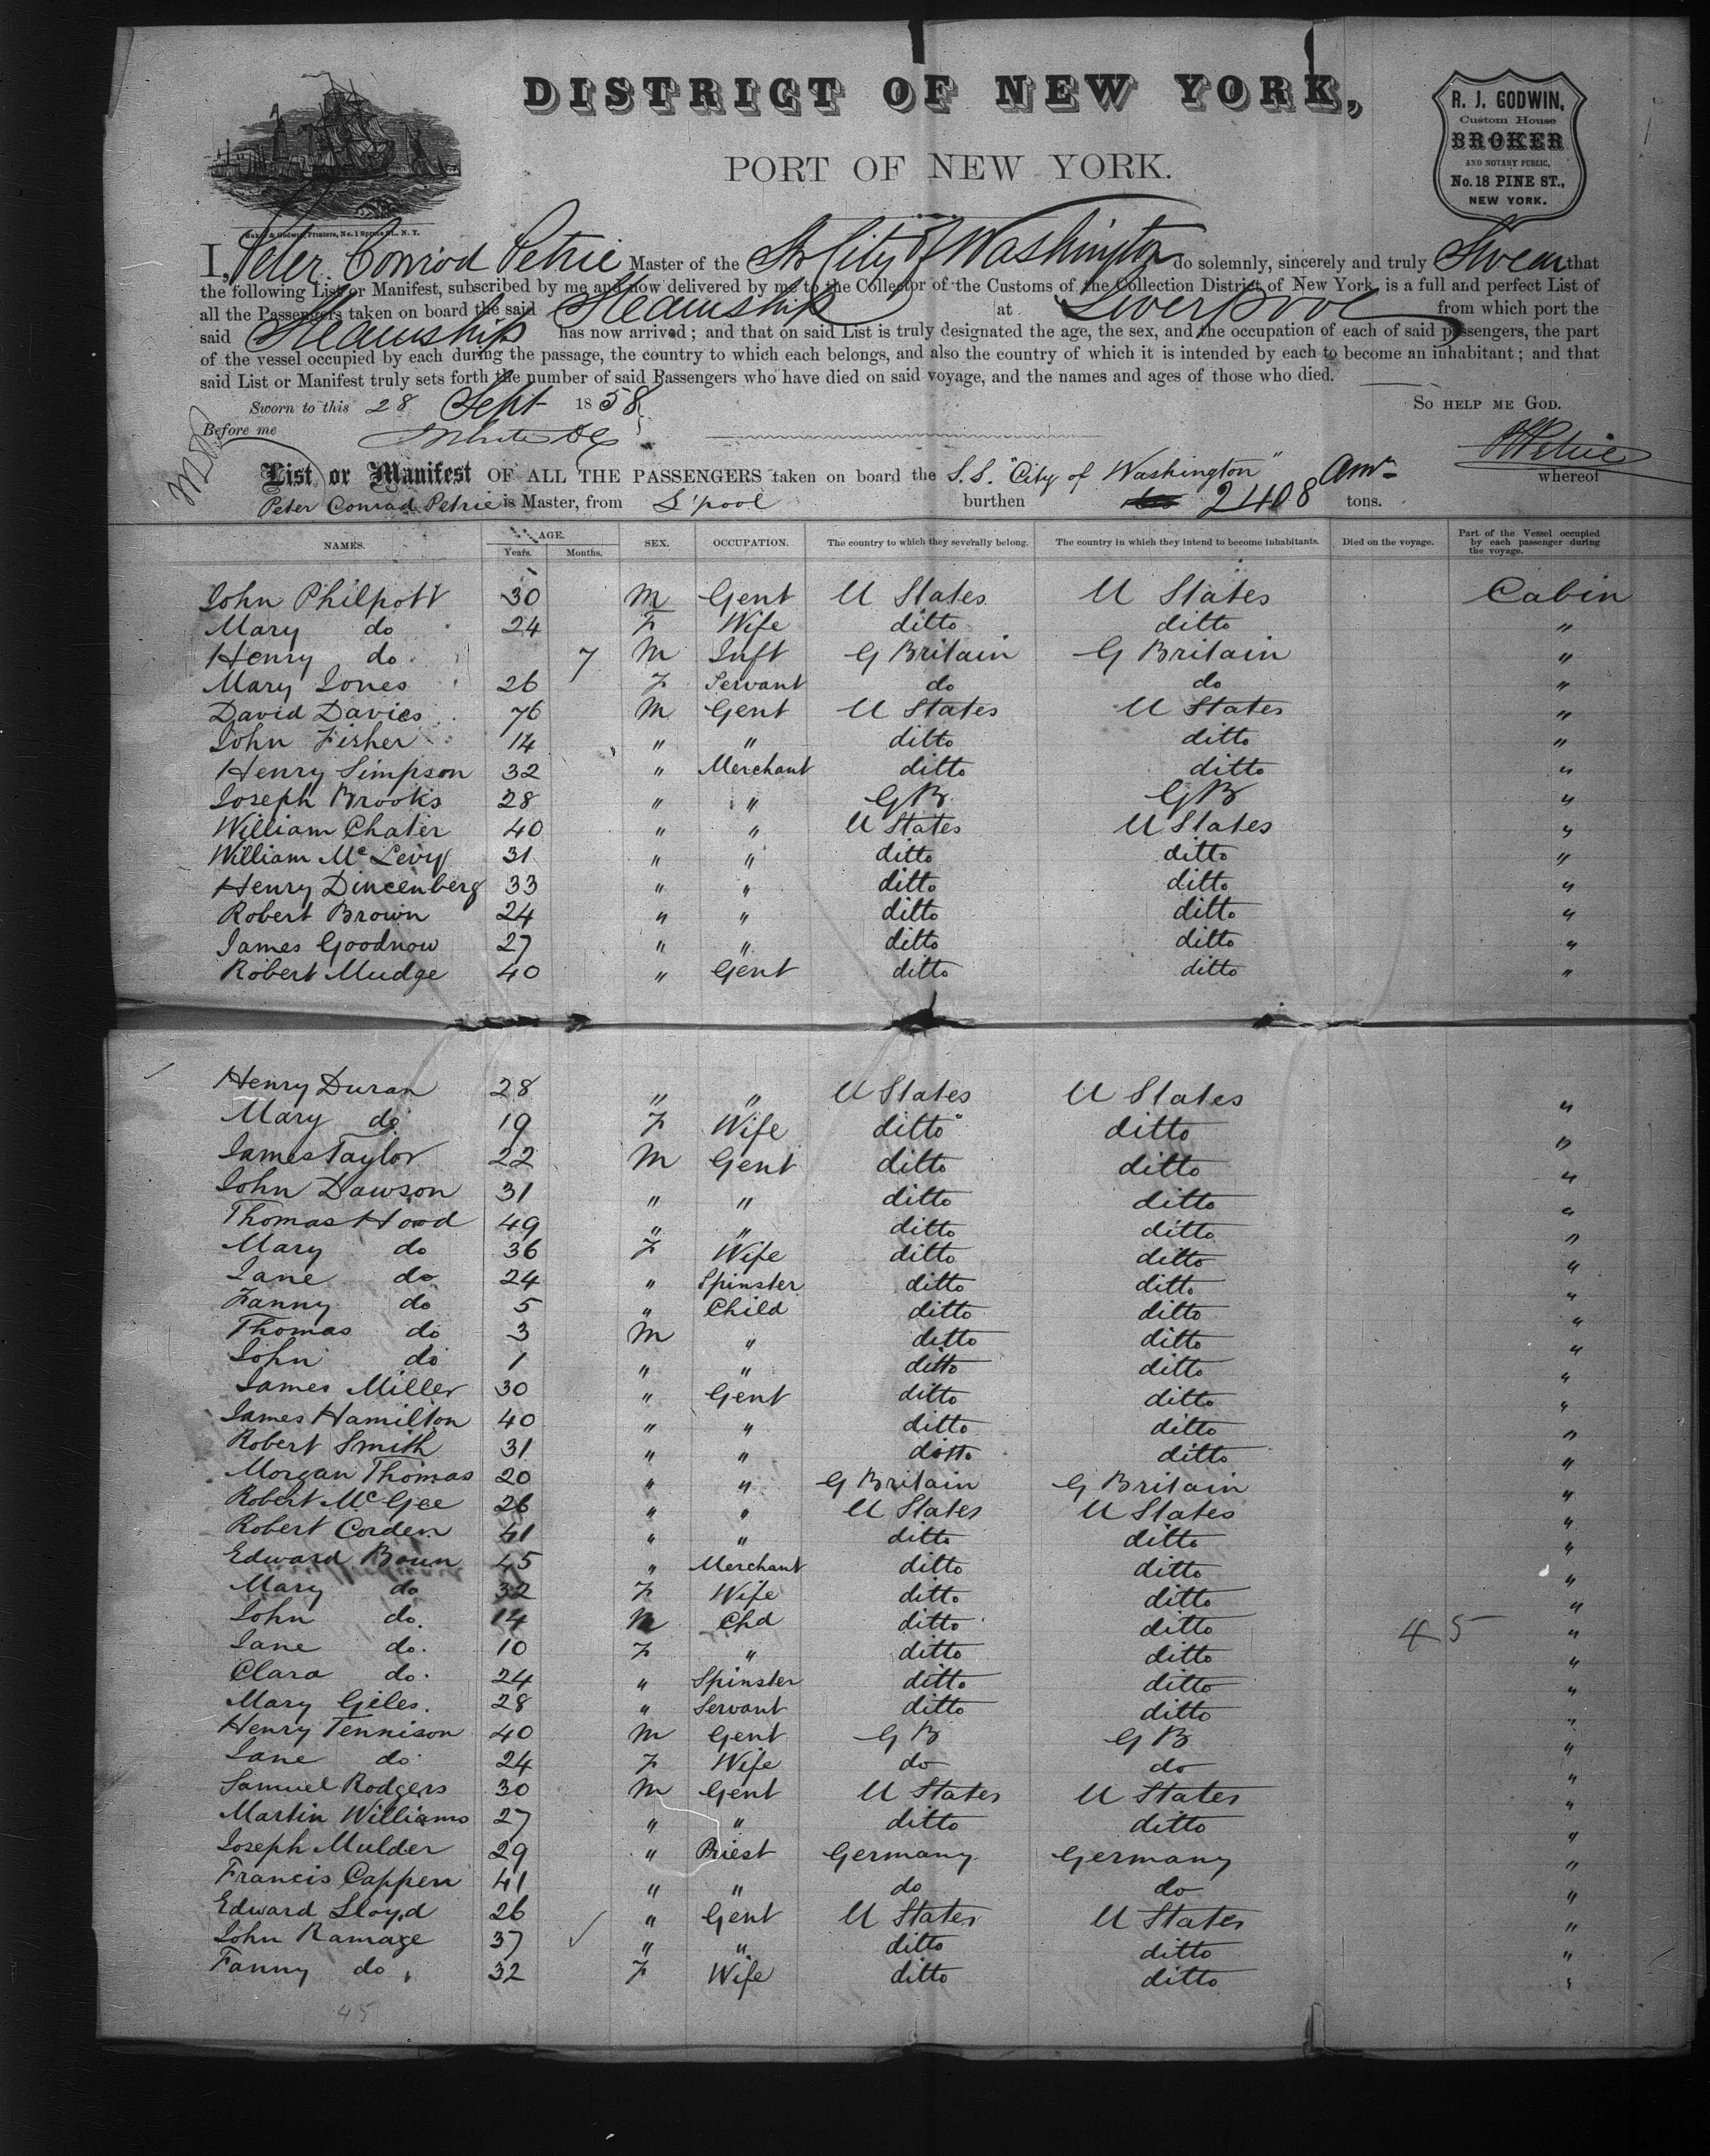 DISTRICT OF NEW YORK,
PORT OF NEW YORK.
R. J. GODWIN,
Custom House
BROKER
AND NOTARY PUBLIC,
No. 18 PINE ST.,
NEW YORK.
Baker & Godwin, Printers, No. 1 Spruce St., N. Y.
I, Peter Conrod Petrie Master of the Str City of Washington do solemnly, sincerely and truly Swear that
the following List or Manifest, subscribed by me and now delivered by me to the Collector of the Customs of the Collection District of New York, is a full and perfect List of
all the Passengers taken on board the said Steamship at Liverpool from which port the
said Steamship has now arrived; and that on said List is truly designated the age, the sex, and the occupation of each of said passengers, the part
of the vessel occupied by each during the passage, the country to which each belongs, and also the country of which it is intended by each to become an inhabitant; and that
said List or Manifest truly sets forth the number of said Passengers who have died on said voyage, and the names and ages of those who died.
Sworn to this 28 Sept 1858
So help me God.
Before me
PC Petrie
List or Manifest OF ALL THE PASSENGERS taken on board the S.S. "City of Washington" whereof
Peter Conrad Petrie is Master, from L'pool burthen 2408 tons.
NAMES. AGE. Years. Months. SEX. OCCUPATION. The country to which they severally belong. The country in which they intend to become inhabitants. Died on the voyage. Part of the Vessel occupied by each passenger during the voyage.
John Philpott 30 M Gent U States U States Cabin
Mary do 24 F Wife ditto ditto "
Henry do 7 M Inft G Britain G Britain "
Mary Jones 26 F Servant do do "
David Davies 76 M Gent U States U States "
John Fisher 14 " " ditto ditto "
Henry Simpson 32 " Merchant ditto ditto "
Joseph Brooks 28 " " GB GB "
William Chater 40 " " U States U States "
William McLevy 31 " " ditto ditto "
Henry Dincenberg 33 " " ditto ditto "
Robert Brown 24 " " ditto ditto "
James Goodnow 27 " " ditto ditto "
Robert Mudge 40 " Gent ditto ditto "
Henry Duran 28 " " U States U States "
Mary do 19 F Wife ditto ditto "
James Taylor 22 M Gent ditto ditto "
John Dawson 31 " " ditto ditto "
Thomas Hood 49 " " ditto ditto "
Mary do 36 F Wife ditto ditto "
Jane do 24 " Spinster ditto ditto "
Fanny do 5 " Child ditto ditto "
Thomas do 3 M " ditto ditto "
John do 1 " " ditto ditto "
James Miller 30 " Gent ditto ditto "
James Hamilton 40 " " ditto ditto "
Robert Smith 31 " " ditto ditto "
Morgan Thomas 20 " " G Britain G Britain "
Robert McGee 26 " " U States U States "
Robert Corden 41 " " ditto ditto "
Edward Boun 45 " Merchant ditto ditto "
Mary do 32 F Wife ditto ditto "
John do. 14 M Chd ditto ditto 45 "
Jane do. 10 F " ditto ditto "
Clara do. 24 " Spinster ditto ditto "
Mary Giles. 28 " Servant ditto ditto "
Henry Tennison 40 M Gent GB GB "
Jane do 24 F Wife do do "
Samuel Rodgers 30 M Gent U States U States "
Martin Williams 27 " " ditto ditto "
Joseph Mulder 29 " Priest Germany Germany "
Francis Cappen 41 " " do do "
Edward Lloyd 26 " Gent U States U States "
John Ramage 37 " " ditto ditto "
Fanny do 32 F Wife ditto ditto "
45